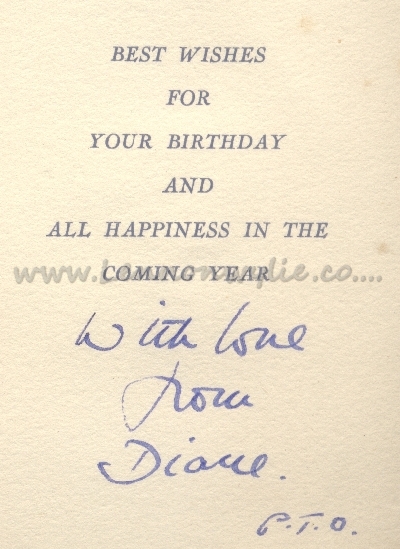 BEST WISHES
FOR
YOUR BIRTHDAY
AND
ALL HAPPINESS IN THE
COMING YEAR
With love
from
Diane.
P.T.O.